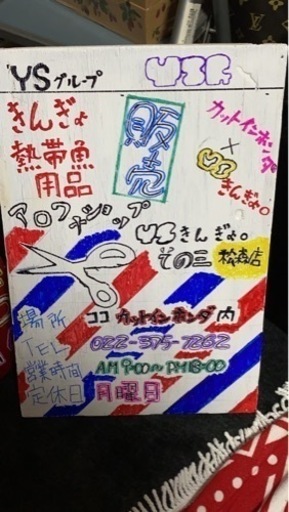 YSグループ
YSK
きんぎょ
熱帯魚
用品
販売
カットインホンダ
×
YSきんぎょ。
アロワナショップ
YSきんぎょ。
その三 松森店
場所 ココ カットインホンダ内
TEL 022-375-7262
営業時間 AM9:00〜PM18:00
定休日 月曜日